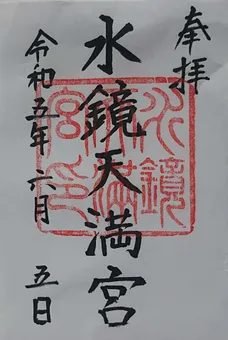 奉拝
水鏡天満宮
水鏡天満宮印
令和五年 六月 五日